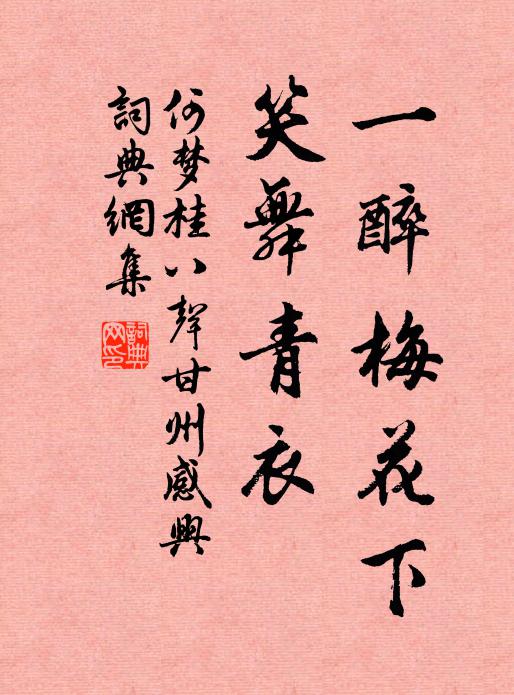 一醉梅花下
笑舞青衣
何梦桂八聲甘州感興
詞典網集
詞典网印